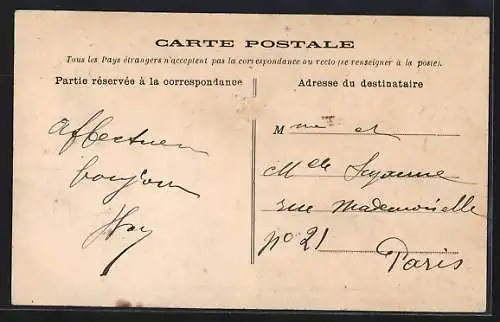 CARTE POSTALE
Tous les Pays étrangers n'acceptent pas la correspondance au recto (se renseigner à la poste).
Partie réservée à la correspondance
Adresse du destinataire
affectueux
bonjour
Mme et
Melle
rue Mademoiselle
no 21
Paris